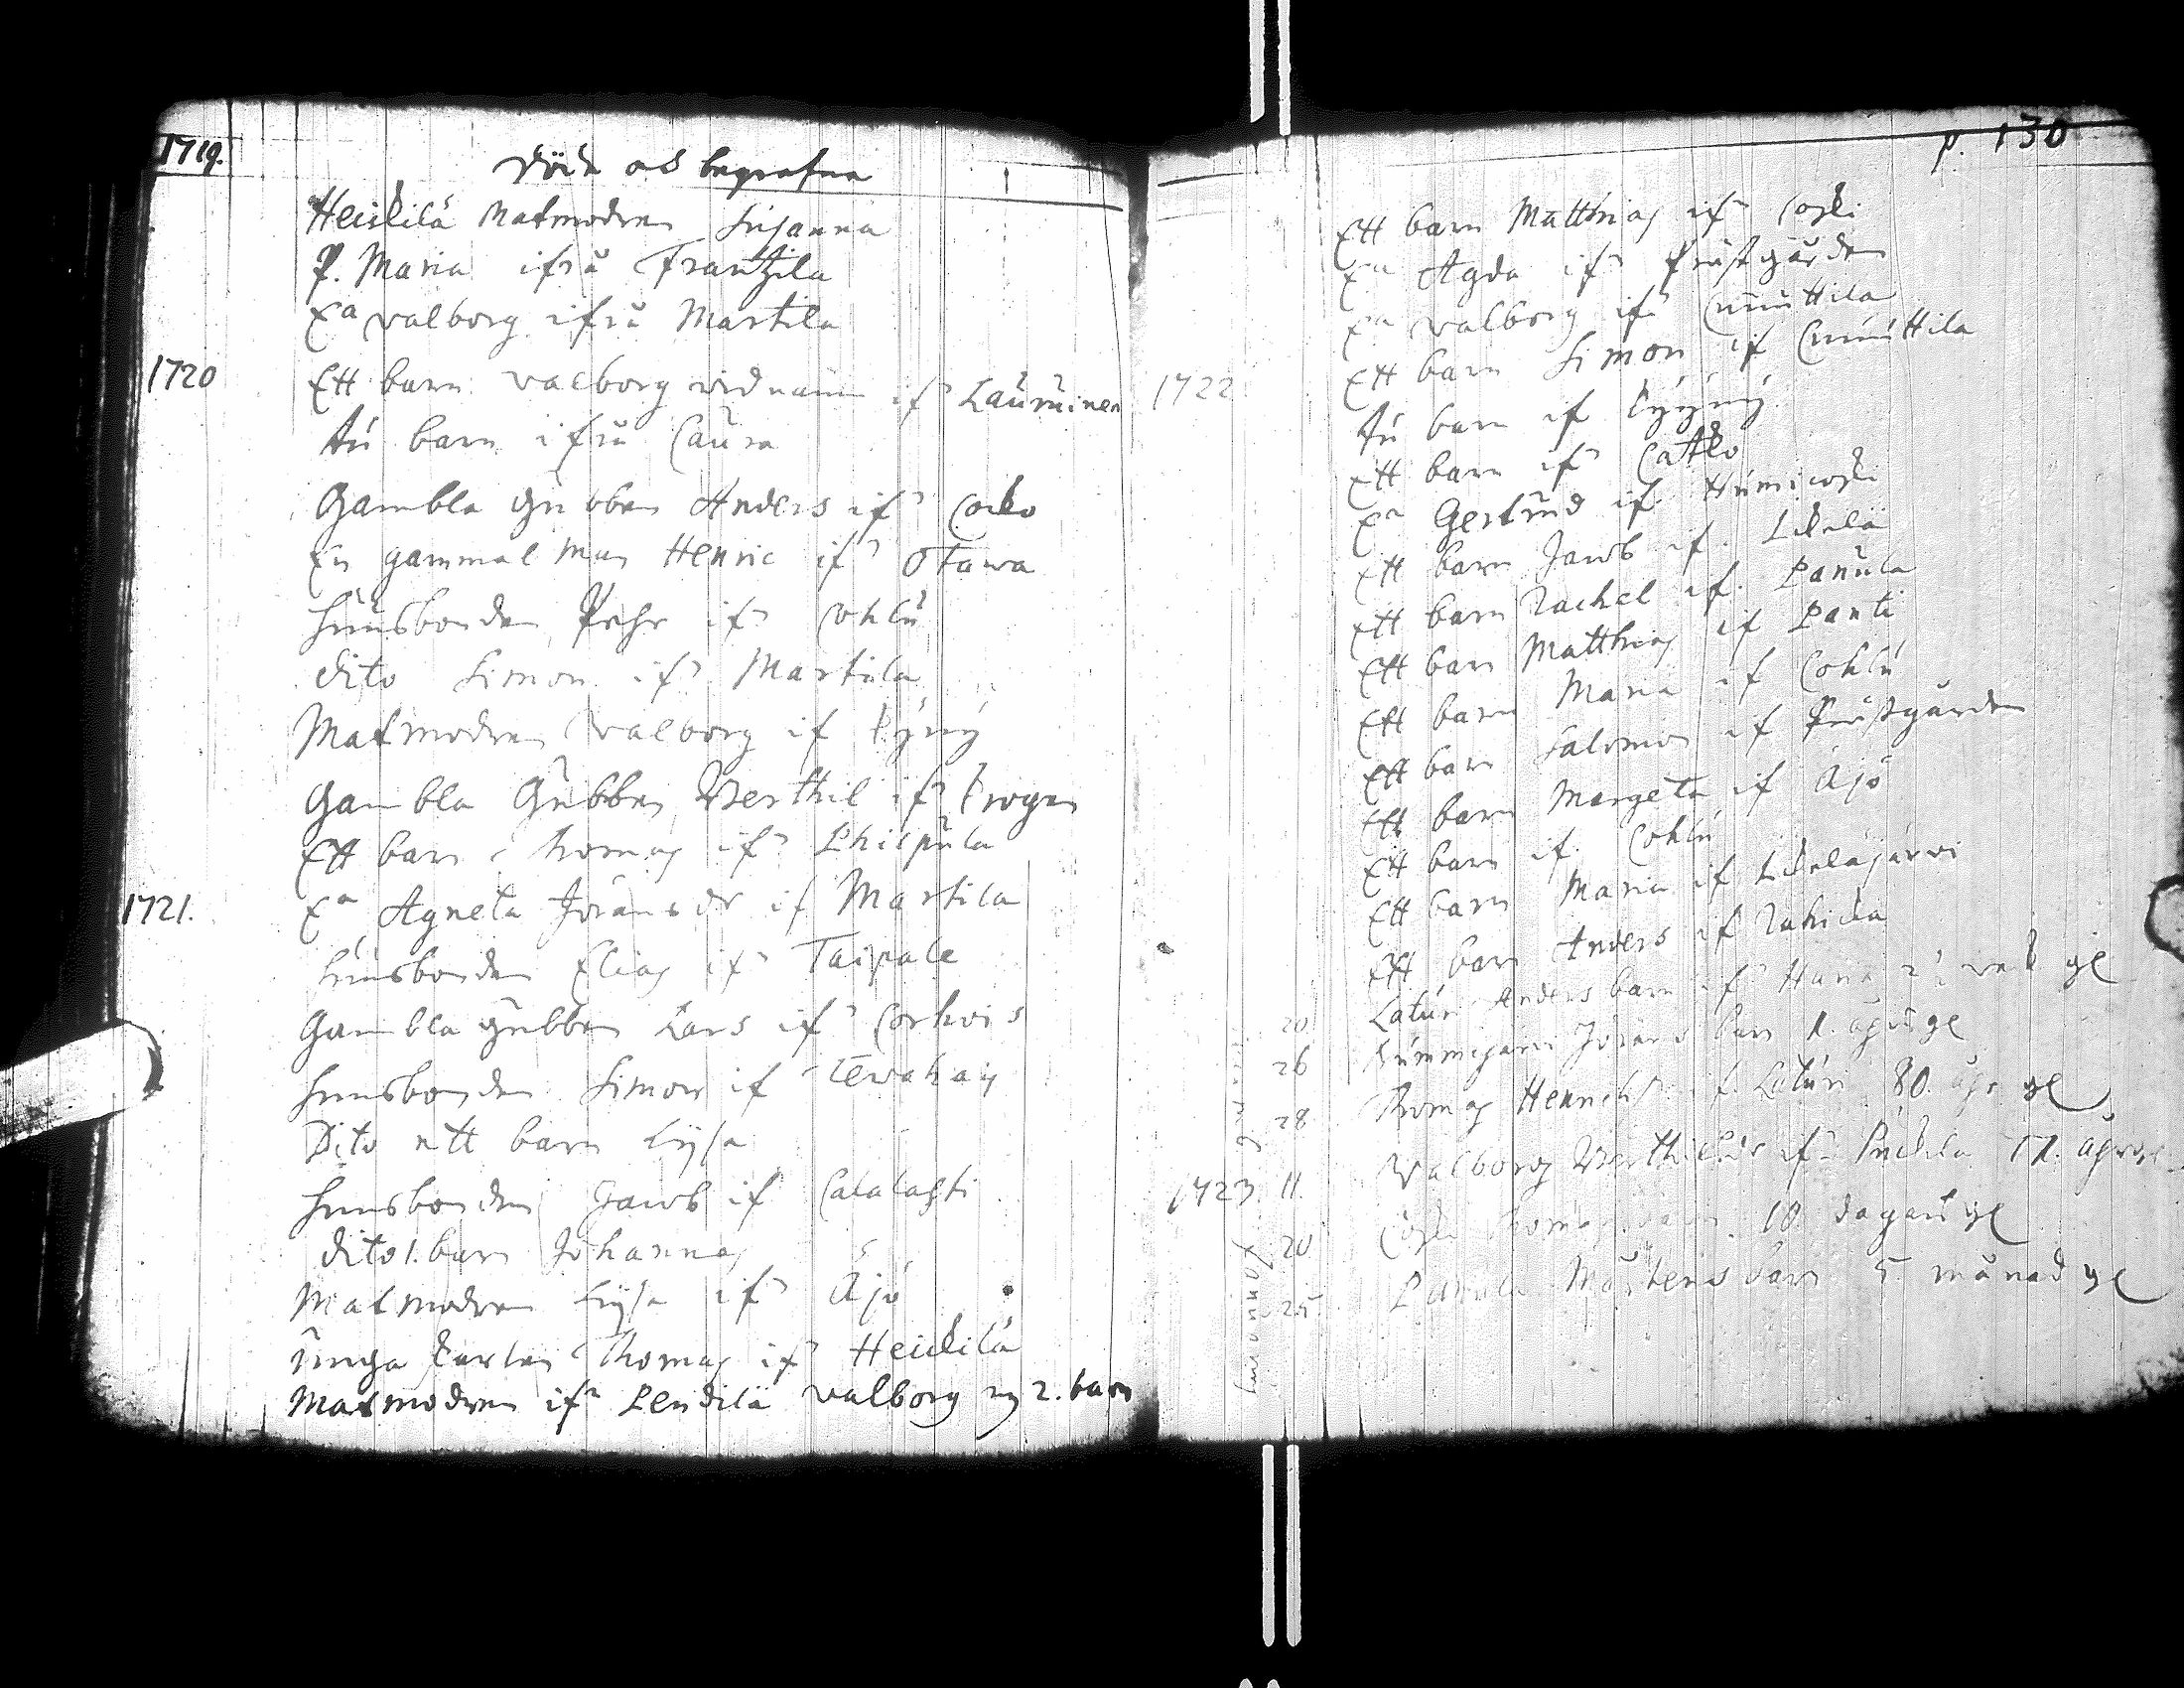 1719.
Döde och begrafna
Heickilä Matmodren Susanna
P. Maria ifrå Frantzila
Ea Valborg ifrå Martila
1720 Ett barn Valborg widnamn ifn Lauruinen
Tu barn ifrå Caura
Gambla Gubben Anders ifn Cocko
En gammal Man Henric ifn Otawa
Huusbonden Pehr ifn Cohlu
dito Simon ifn Martila
Matmodren Valborg if Pyyny
Gambla Gubben Berthil ifn
Ett barn Thomas ifn Lhilpula
1721. Ea Agneta Jöransdr if Martila
Huusbonden Elias ifn Taipale
Gambla gubben Lars ifn Corhois
Huusbonden Simon if Tewahan
Dito ett barn Lysa
Huusbonden Jacob if Calalahti
dito 1. barn Johannas
Matmodren Lysa ifn Äjö
Unga Karlen Thomas ifn Heickilä
Matmodren ifn Lendilä Valborg 2. barn
p. 130
Ett barn Matthias ifn Coski
Ea Agda ifn Prästgården
Ea Valborg ifn Cnuuttila
Ett barn Simon if Cnuuttila
1722 Tu barn if Pyyny
Ett barn ifn Catko
Ea Gertrud if Humicoski
Ett barn Jacob if. Likelä
Ett barn Rachel if. Panula
Ett barn Matthias if Panti
Ett barn Maria if Cohlu
Ett barn Salomon if Prästgården
Ett barn Margeta if Äjö
Ett barn if. Cohlu
Ett barn Maria if Likeläjärwi
Ett barn Anders if Rahicka
20 Laturi Anders barn ifn Hana 2 wek gl
26 Jörans barn 1. åhrs gl
28 Thomas Henrichs if. Laturi 80. åhr gl
1723. 11. Valborg Berthilsdr ifn 17. åhr gl
20 Coski Thomas barn 10 dagars gl
25 Panula Mårtens barn 5 månad gl
Januarius